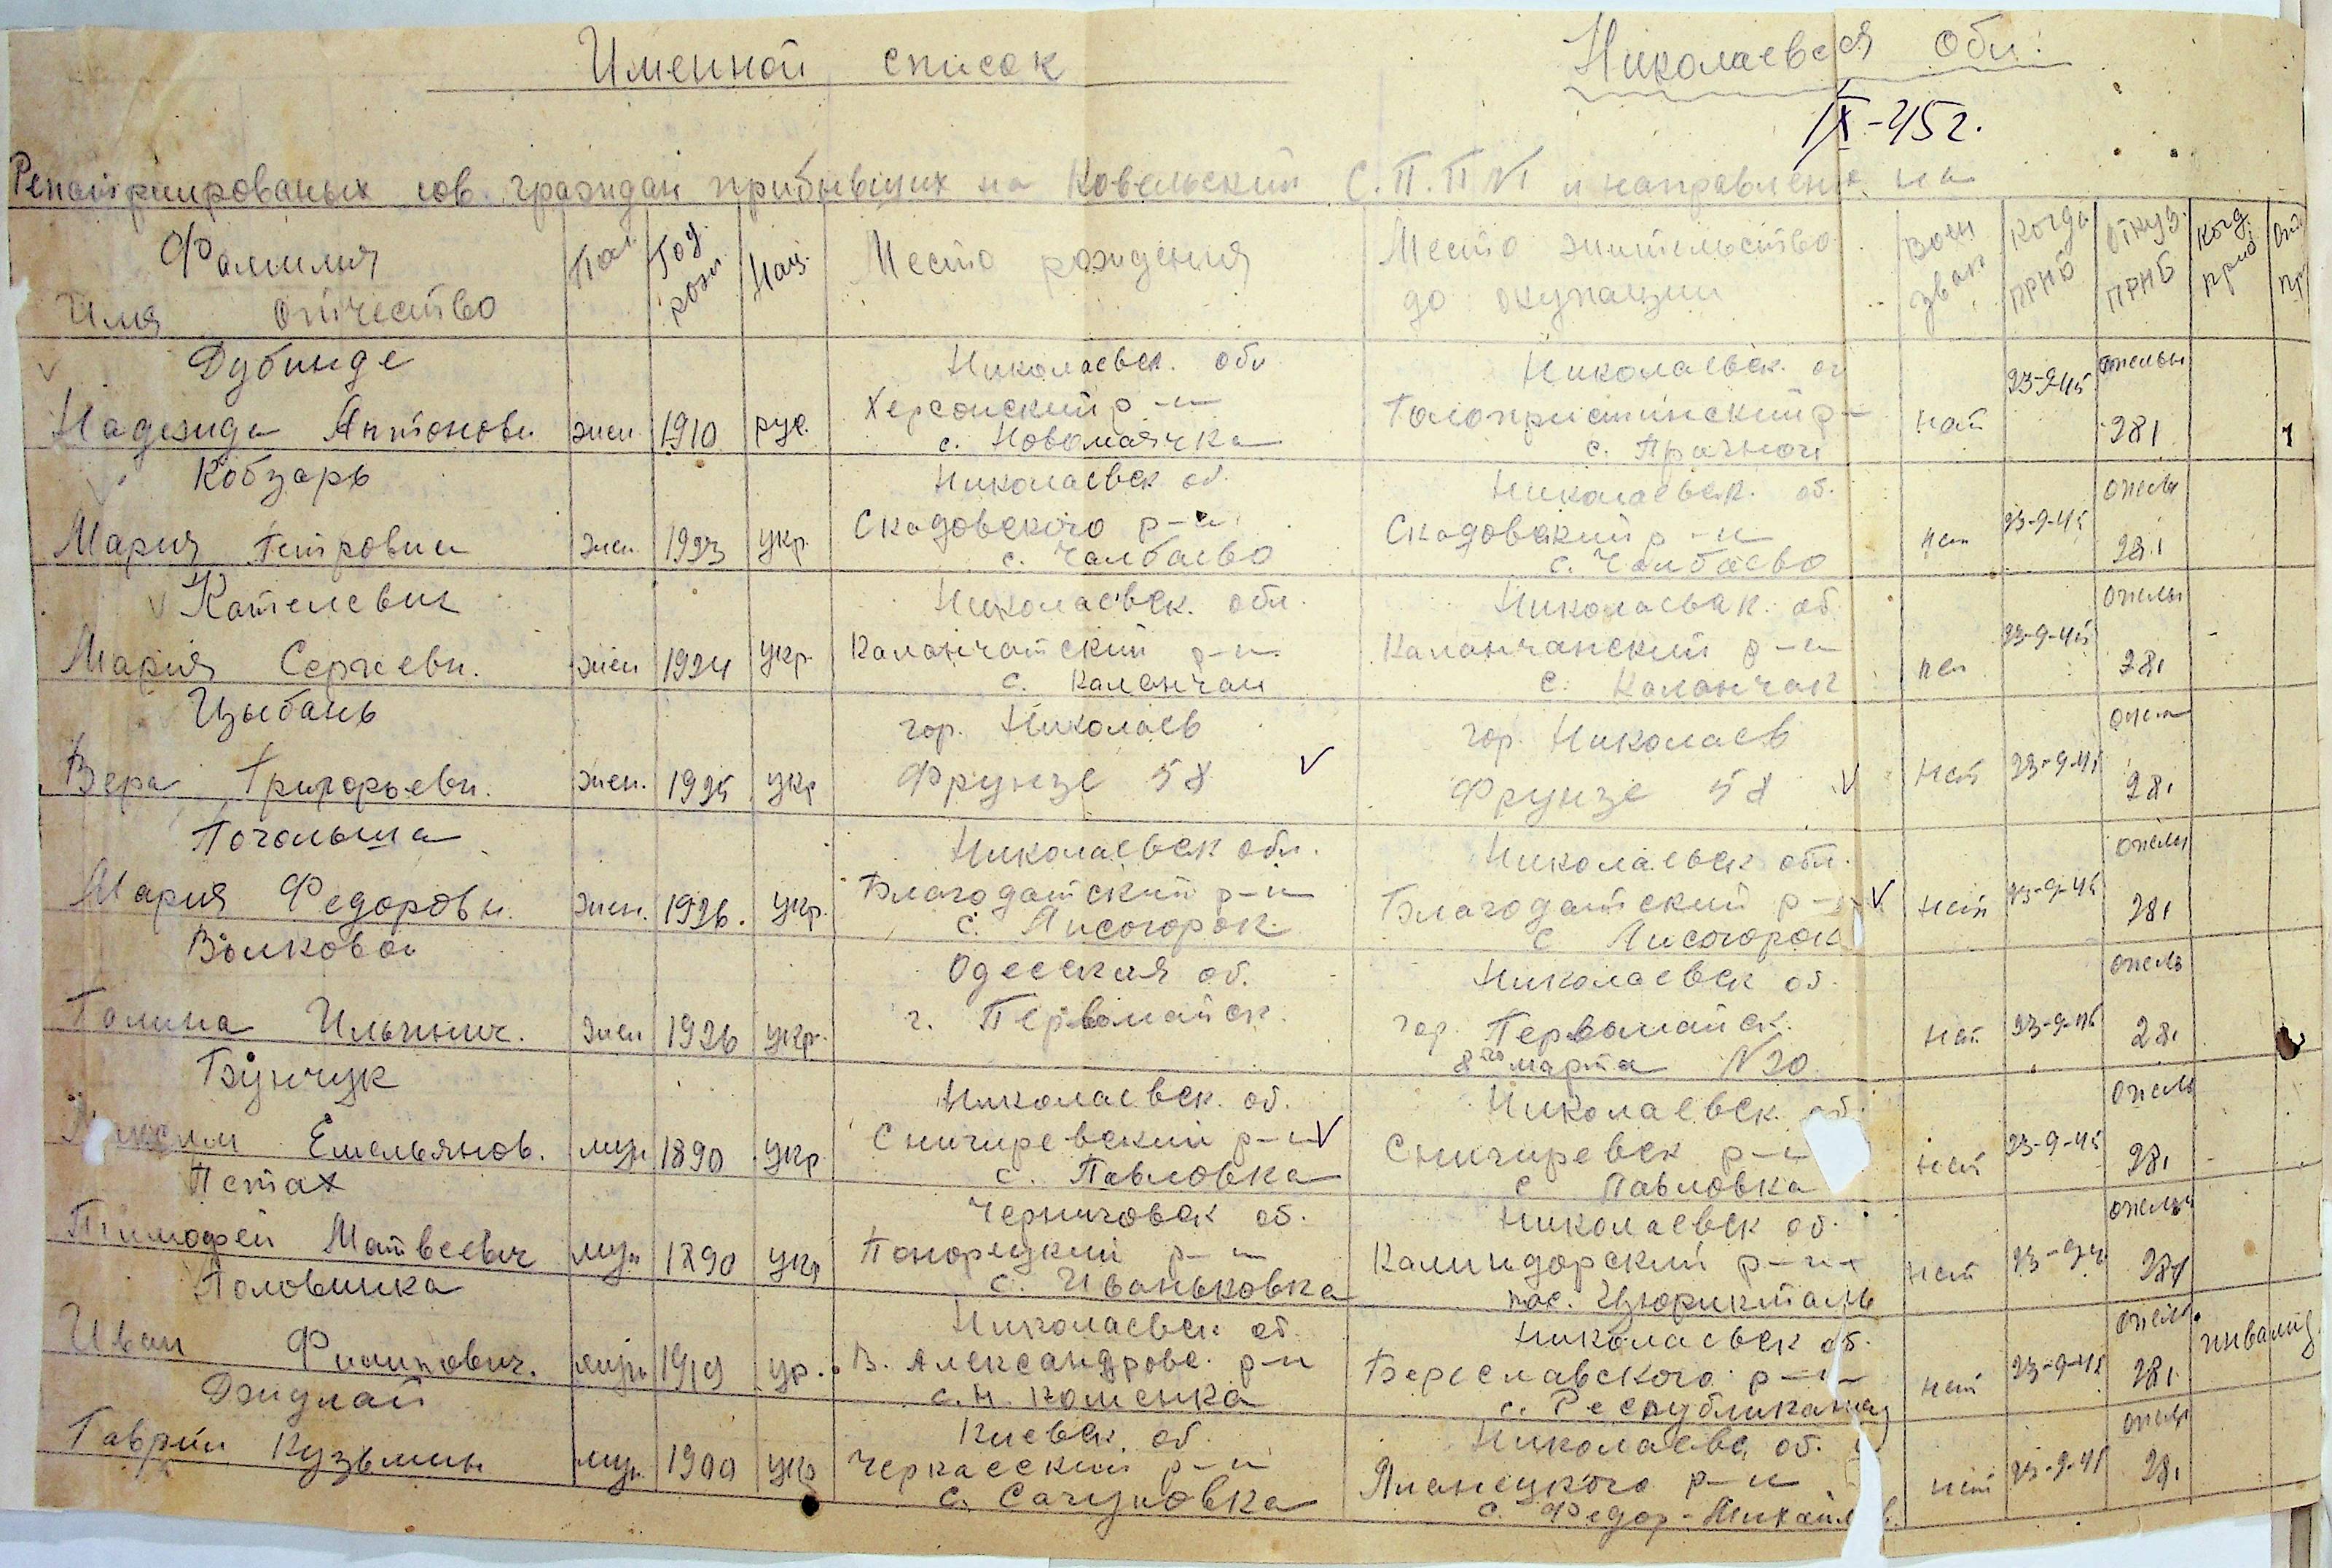 Именной список
Николаевся обл.
IX-45г.
Репатриированых сов. граждан прибывших на Ковельский С.П.П №1 и направлены на
Фамилия
Имя Отчество
Пол
Год. рожд.
Нац.
Место рождения
Место жительство
до окупации
Воен зван
Когда приб
Откуд. приб
Когд приб
Дубинде
Николаевск. обл
Николаевск. об
Надежда Антоновн жен 1910 рус.
Херсонский р-н
с. Новомаячка
Голопристинский р-н
нет 23-9-45
281 1
Кобзарь
Николаевск об.
Николаевск. об.
Мария Петровна жен. 1923 укр.
Скадовского р-н
с. Чалбаево
Скадовский р-н
с. Чалбаево
нет 23-9-45
281
Николаевск. обл.
Николаевск. об.
Мария Сергеевн. жен 1924 укр.
Каланчатский р-н
с. Каланчак
Каланчанский р-н
с. Каланчак
нет 23-9-45
281
Цыбань
гор. Николаев
гор. Николаев
Вера Григорьевн. жен. 1925 укр
Фрунзе 58
Фрунзе 58
нет 23-9-45
281
Николаевск обл.
Николаевск обл.
Мария Федоровн. жен. 1926. укр.
Благодатский р-н
с. Лисогорок
Благодатский р-н
с Лисогорок
нет 23-9-45
281
Волковой
Одесская об.
Николаевск об.
Галина Ильинич. жен 1926 укр.
г. Первомайск.
гор. Первомайск.
8го марта №20
нет 23-9-45
281
Бунчук
Николаевск. об.
Николаевск. об.
Емельянов. муж 1890 укр
Снигиревский р-н
с. Павловка
Снигиревск р-н
с Павловка
нет 23-9-45
281
Петах
Черниговск об.
Николаевск об.
Тимофей Матвеевич муж 1890 укр
Понорицкий р-н
с. Иваньковка
Калиндорский р-н
нет
281
Головинка
Николаевск об.
Николаевск об.
Иван Филипович. муж 1919 ук.
В. Александровс. р-н
с. Н. Каменка
Береславского р-н
нет 23-9-45
281
инвалид
Джулай
Киевск. об.
Николаевс об.
Гаврил Кузьмин муж 1900 укр
Черкасский р-н
с. Сагуновка
Яланецкого р-н
с. Федор-Михайлов.
нет 23-9-45
281